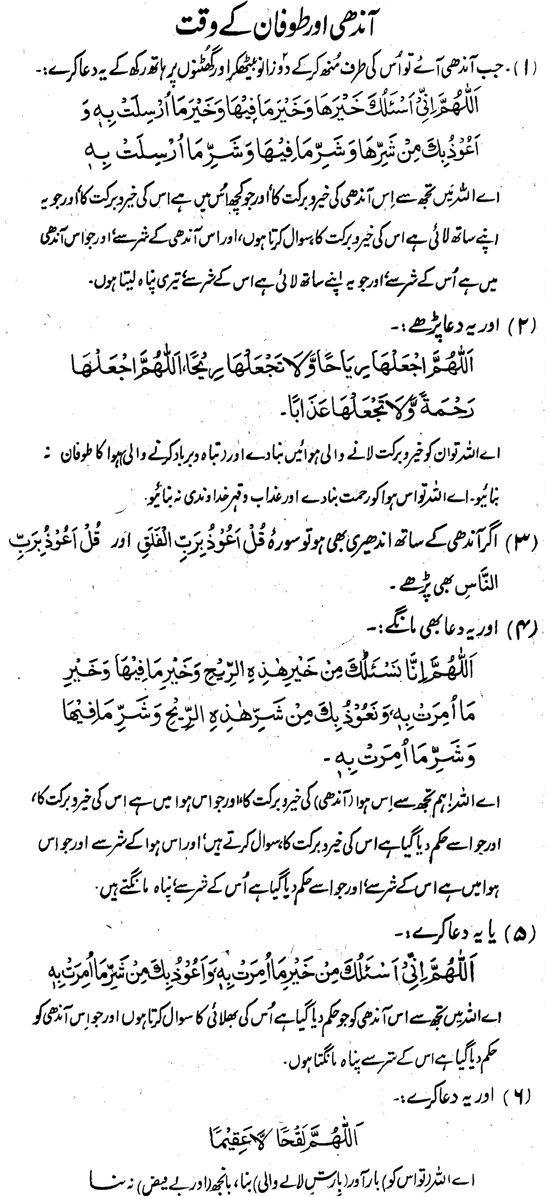 آندھی اور طوفان کے وقت
(۱)۔ جب آندھی آئے تو اُس کی طرف منھ کر کے دو زانو بیٹھکر اور گھٹنوں پر ہاتھ رکھ کے یہ دعا کرے:۔
اَللّٰهُمَّ اِنِّیْ اَسْئَلُكَ خَیْرَهَا وَخَیْرَ مَا فِیْهَا وَخَیْرَ مَا اُرْسِلَتْ بِهٖ وَ
اَعُوْذُ بِكَ مِنْ شَرِّهَا وَشَرِّ مَا فِیْهَا وَشَرِّ مَا اُرْسِلَتْ بِهٖ
اے اللہ میں تجھ سے اِس آندھی کی خیر و برکت کا، اور جو کچھ اس میں ہے اس کی خیر و برکت کا، اور جو یہ
اپنے ساتھ لائی ہے اس کی خیر و برکت کا، سوال کرتا ہوں، اور اس آندھی کے شر سے، اور جو اس آندھی
میں ہے اُس کے شر سے، اور جو یہ اپنے ساتھ لائی ہے اس کے شر سے تیری پناہ لیتا ہوں۔
(۲) اور یہ دعا پڑھے:۔
اَللّٰهُمَّ اجْعَلْهَا رِیَاحًا وَّلَا تَجْعَلْهَا رِیْحًا، اَللّٰهُمَّ اجْعَلْهَا
رَحْمَةً وَّلَا تَجْعَلْهَا عَذَابًا۔
اے اللہ تو ان کو خیر و برکت لانے والی ہوائیں بنا دے اور (تباہ و برباد کرنے والی) ہوا کا طوفان نہ
بنائیو۔ اے اللہ تو اس ہوا کو رحمت بنا دے اور عذاب و قہر خداوندی نہ بنائیو۔
(۳) اگر آندھی کے ساتھ اندھیری بھی ہو تو سورہ قُلْ اَعُوْذُ بِرَبِّ الْفَلَقِ اور قُلْ اَعُوْذُ بِرَبِّ
النَّاسِ بھی پڑھے۔
(۴) اور یہ دعا بھی مانگے:۔
اَللّٰهُمَّ اِنَّا نَسْئَلُكَ مِنْ خَیْرِ هٰذِهِ الرِّیْحِ وَخَیْرِ مَا فِیْهَا وَخَیْرِ
مَا اُمِرَتْ بِهٖ، وَنَعُوْذُ بِكَ مِنْ شَرِّ هٰذِهِ الرِّیْحِ وَشَرِّ مَا فِیْهَا
وَشَرِّ مَا اُمِرَتْ بِهٖ۔
اے اللہ! ہم تجھ سے اِس ہوا (آندھی) کی خیر و برکت کا، اور جو اس ہوا میں ہے اس کی خیر و برکت کا،
اور جو اسے حکم دیا گیا ہے اس کی خیر و برکت کا، سوال کرتے ہیں، اور اس ہوا کے شر سے اور جو اس
ہوا میں ہے اس کے شر سے، اور جو اسے حکم دیا گیا ہے اُس کے شر سے، پناہ مانگتے ہیں۔
(۵) یا یہ دعا کرے:۔
اَللّٰهُمَّ اِنِّیْ اَسْئَلُكَ مِنْ خَیْرِ مَا اُمِرَتْ بِهٖ وَاَعُوْذُ بِكَ مِنْ شَرِّ مَا اُمِرَتْ بِهٖ
اے اللہ میں تجھ سے اس آندھی کو جو حکم دیا گیا ہے اُس کی بھلائی کا سوال کرتا ہوں اور جو اِس آندھی کو
حکم دیا گیا ہے اس کے شر سے پناہ مانگتا ہوں۔
(۶) اور یہ دعا کرے:۔
اَللّٰهُمَّ لَقْحًا لَّا عَقِیْمًا
اے اللہ (تو اس کو) بار آور (بارش لانے والی) بنا، بانجھ (اور بے فیض) نہ بنا